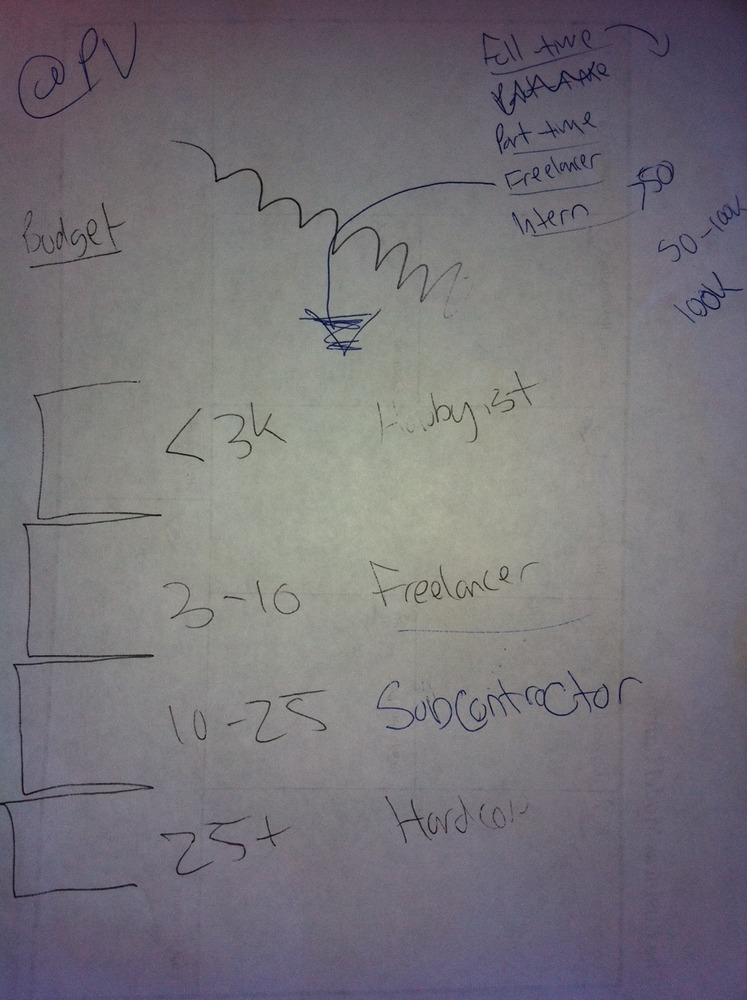 @PV
Full-time
Part-time
Freelancer
Intern
50
50-100k
100k
Budget
<3k Hobbyist
3-10 Freelancer
10-25 Subcontractor
25+ Hardcore